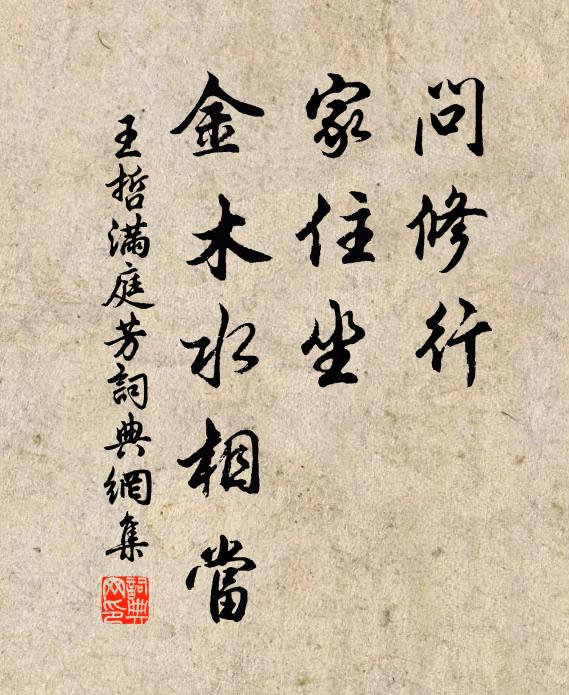 問修行
家住坐
金木水相當
王哲滿庭芳詞典網集
詞典
网印